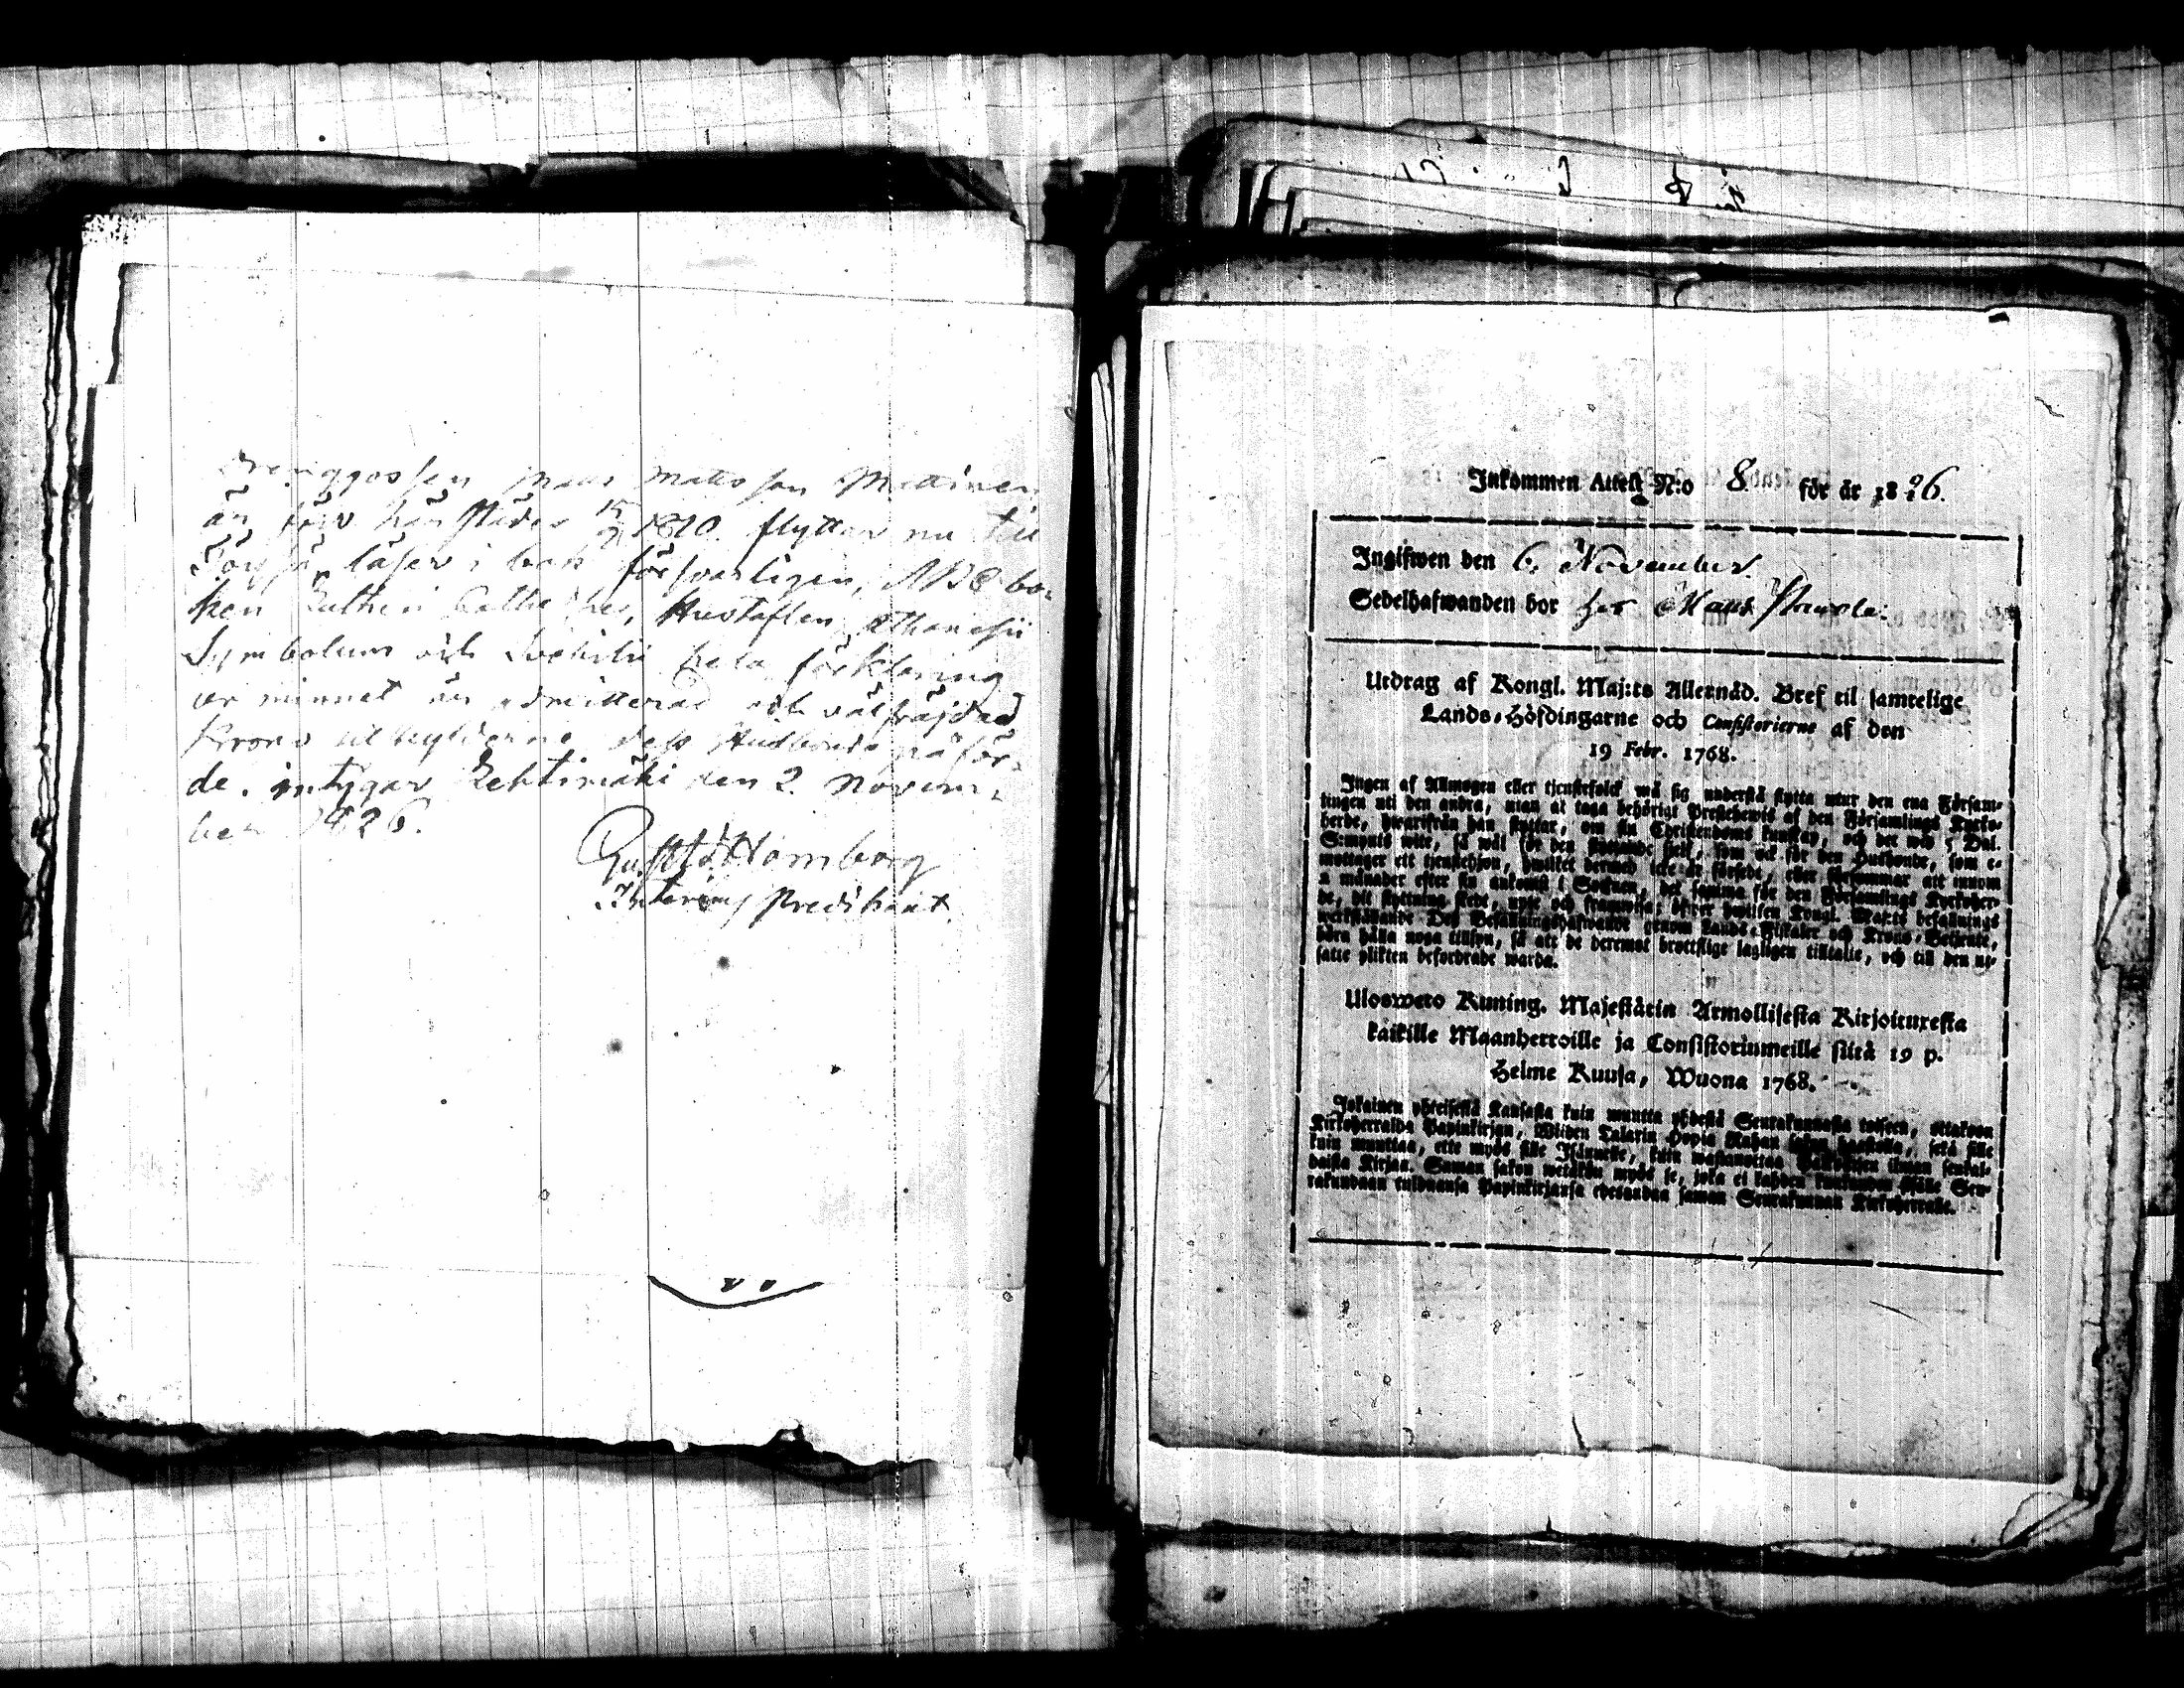 Drenggossen Mats Matsson
är född härstädes 15/2 1810. flyttar nu till
läser i bok försvarligen, ABC bo-
ken Lutheri Hustaflan Athanasii
Symbolum och hela förklaring
ur minnet är admitterad och välfräjdad
Krono utskylderne dess Husbonde påför-
de. intygar Lehtimäki den 2 Novem-
ber 1826.
Gust. Homborg
Interims Predikant.
Inkommen Attest N:o 8. för år 1826.
Ingifwen den 6. November.
Sedelhafwanden bor hos
Utdrag af Kongl. Maj:ts Allernåd. Bref til samtelige
Lands-Höfdingarne och Consistorierne af den
19 Febr. 1768.
Ingen af Allmogen eller tjenstefolck må sig understå flytta utur den ena Försam-
lingen uti den andra, utan at taga behörigt Prestebewis af den Församlings Kyrko-
herde, hwarifrån han flyttar, om sin Christendoms kunskap, och det wid 5 Dal.
S:mynts wite, så wäl för den flyttande sjelf, som ock för den Husbonde, som e-
mottager ett tjenstehjon, hwilket dermed icke är försedt, eller försummar att innom
2 månader efter sin ankomst i Socknen, det samma för den Församlings Kyrkoher-
de, dit flyttning skedt, upte och framwisa: öfwer hwilken Kongl. Maj:ts befallnings
werkställande Deß Befallningshafwande genom Lands-Fiskaler och Krono-Betjente,
böra hålla noga tillsyn, så att de deremot brottslige lagligen tilltalte, och till den ut-
satte plikten befordrade warda.
Ulosweto Kuning. Majestätin Armollisesta Kirjoituxesta
kaikille Maanherroille ja Consistoriumeille siitä 19 p.
Helme Kuusa, Wuona 1768.
Jokainen yhteisestä Kansasta kuin muutta yhdestä Seurakunnasta toiseen, ottakoon
Kirkoherralda Papinkirjan, Wijden Talarin Hopia Rahan sakon haastolla, sekä sille
kuin muuttaa, ette myös sille Isännelle, kuin wastanottaa Palkollisen ilman senkal-
daista Kirjaa. Saman sakon wetäkön myös se, joka ei kahden kuukauden sisälle Seu-
rakundaan tulduansa Papinkirjansa edesanna saman Seurakunnan Kirkoherralle.